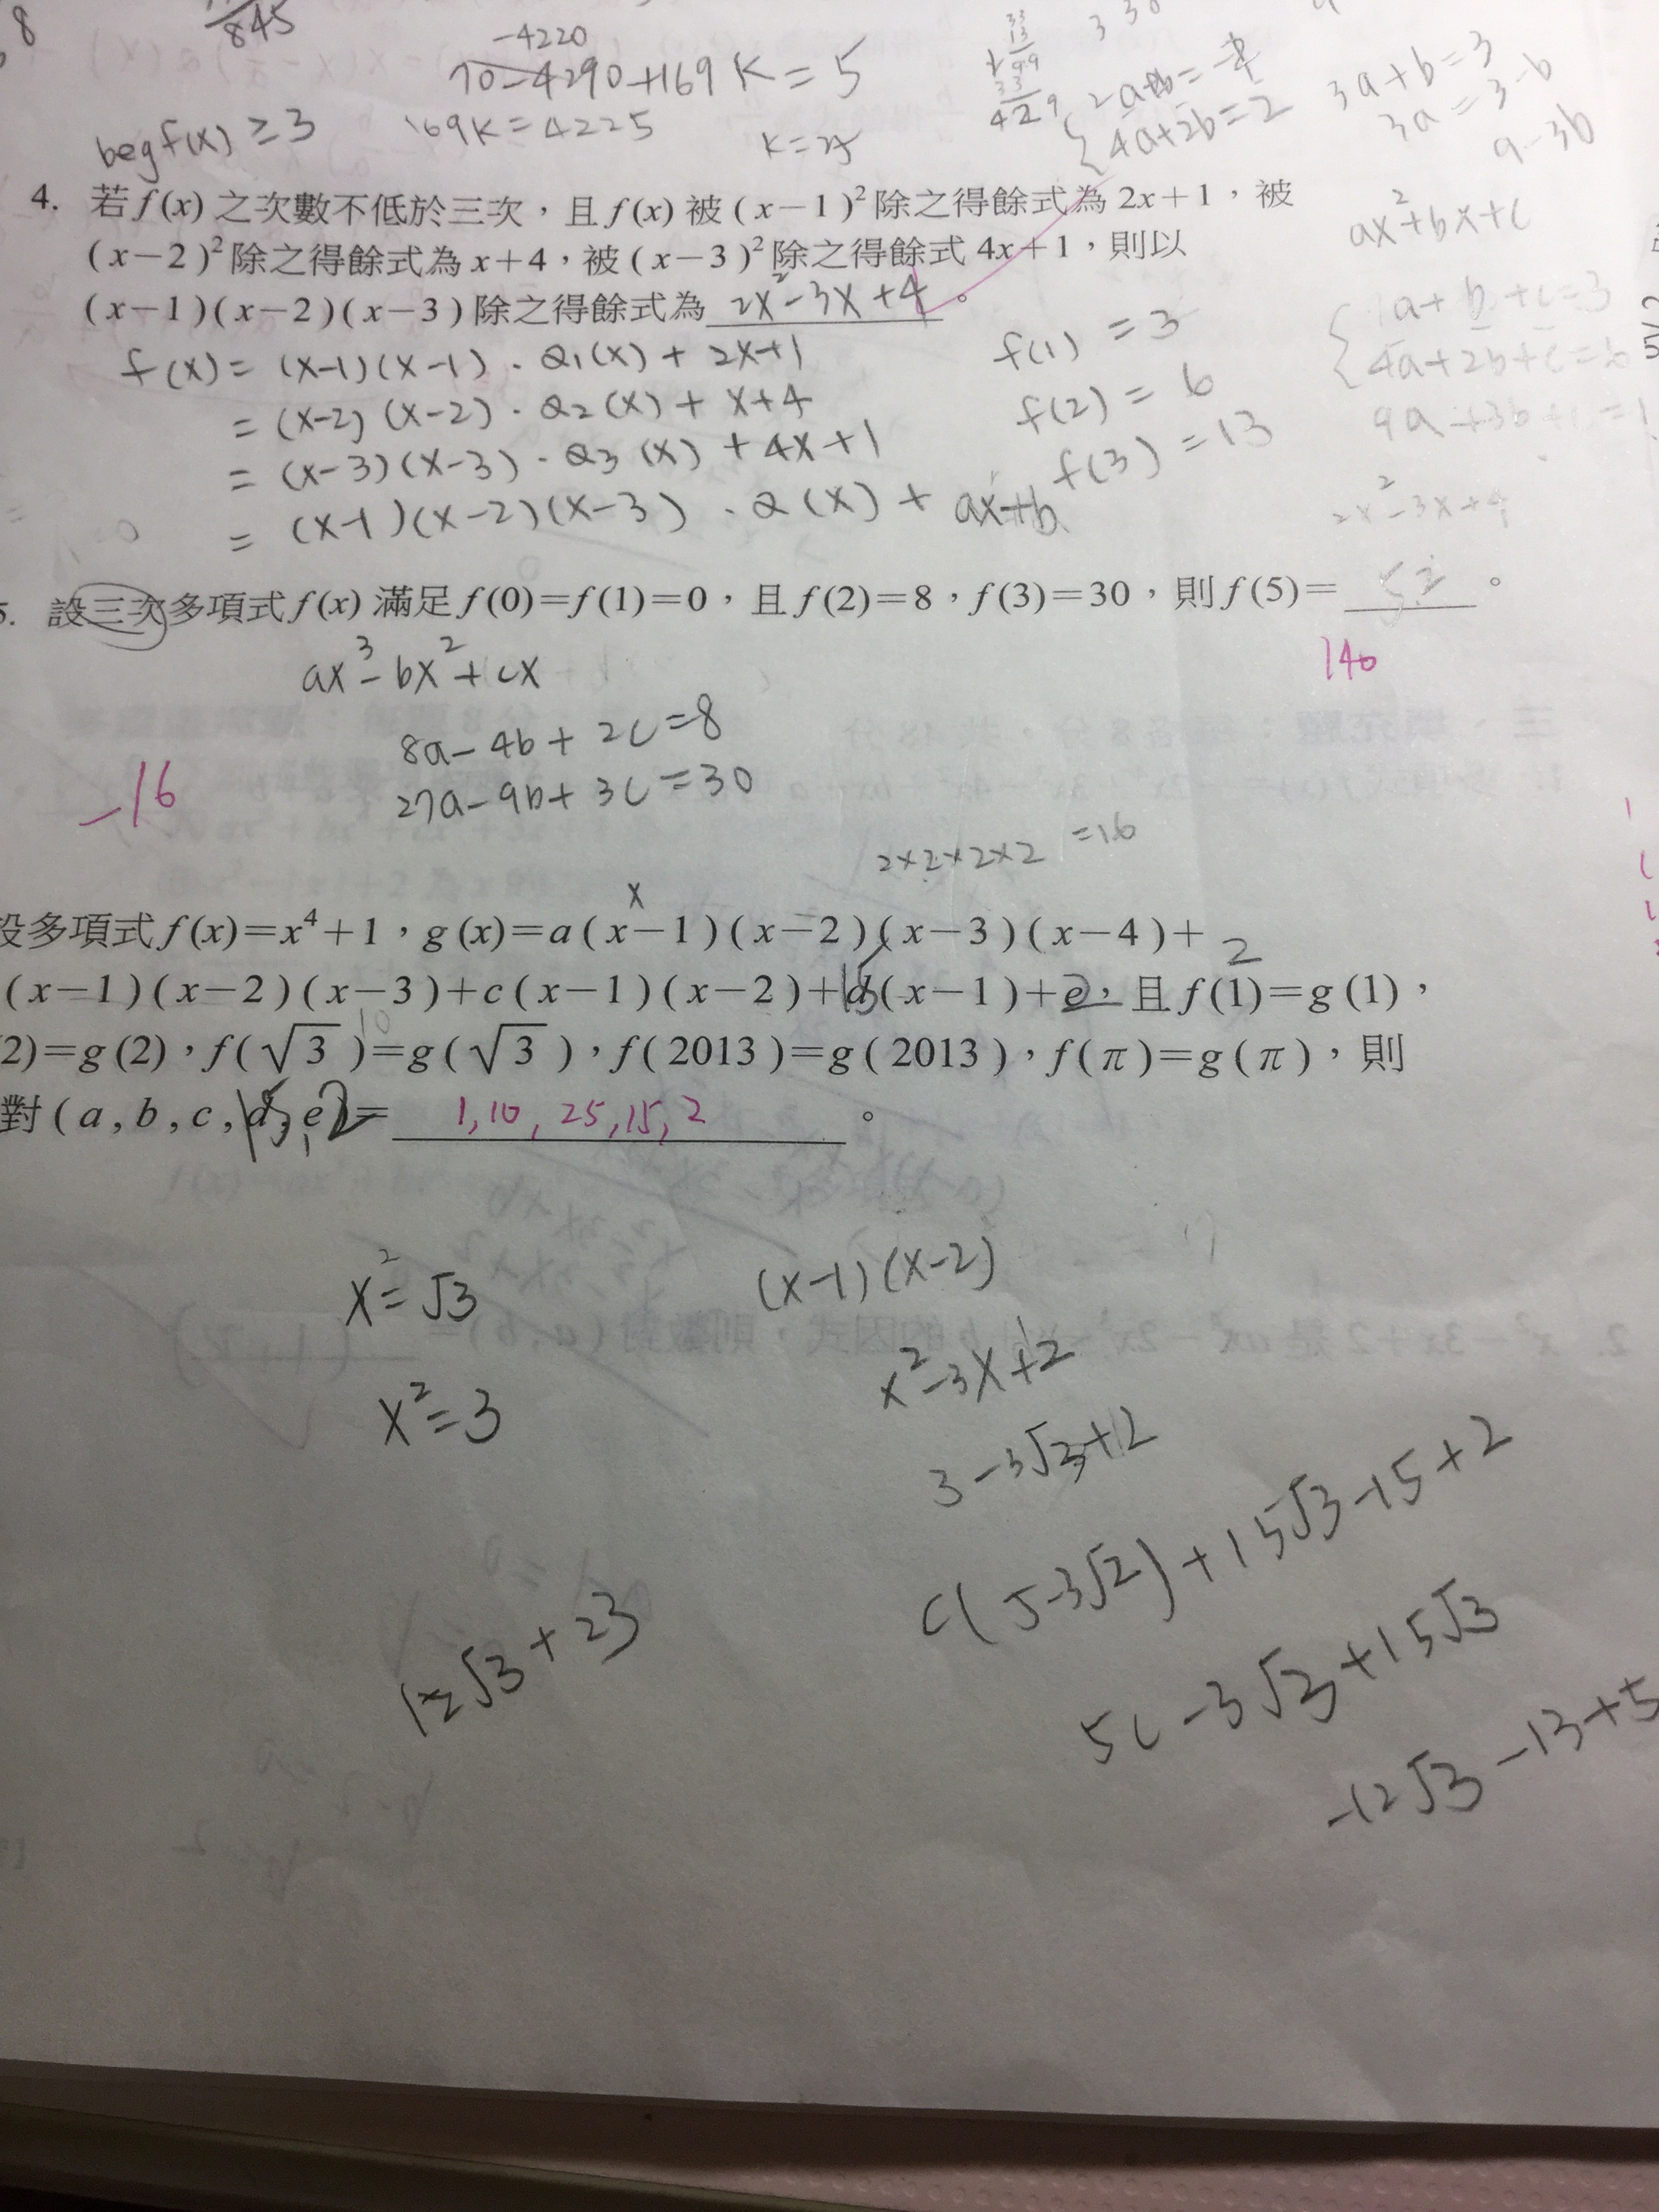 8
845
-4220
70-4290+169K=5
169K=4225
K=25
begf(x)≥3
33
13
99
33
429
3 30
4a+2b=2
3a+b=3
3a=3-b
9-3b
4. 若f(x)之次數不低於三次，且f(x)被(x-1)²除之得餘式為2x+1，被
(x-2)²除之得餘式為x+4，被(x-3)²除之得餘式4x+1，則以
(x-1)(x-2)(x-3)除之得餘式為 2x²-3x+4 。
ax²+bx+c
f(x)=(x-1)(x-1)·Q1(x)+2x+1
=(x-2)(x-2)·Q2(x)+x+4
=(x-3)(x-3)·Q3(x)+4x+1
=(x-1)(x-2)(x-3)·Q(x)+ax+b
f(1)=3
f(2)=6
f(3)=13
1a+b+c=3
4a+2b+c=6
2x²-3x+4
5. 設三次多項式f(x)滿足f(0)=f(1)=0，且f(2)=8，f(3)=30，則f(5)= 52 。
140
ax³-bx²+cx
8a-4b+2c=8
27a-9b+3c=30
-16
2×2×2×2=16
x
設多項式f(x)=x⁴+1，g(x)=a(x-1)(x-2)(x-3)(x-4)+
2
(x-1)(x-2)(x-3)+c(x-1)(x-2)+d(x-1)+e，且f(1)=g(1)，
15
10
2)=g(2)，f(√3)=g(√3)，f(2013)=g(2013)，f(π)=g(π)，則
對(a,b,c,d,e)= 1,10,25,15,2 。
15, 2
x²=√3
x²=3
(x-1)(x-2)
x²-3x+2
3-3√3+2
c(5-3√2)+15√3-15+2
5c-3√3+15√3
-12√3-13+5
12√3+23